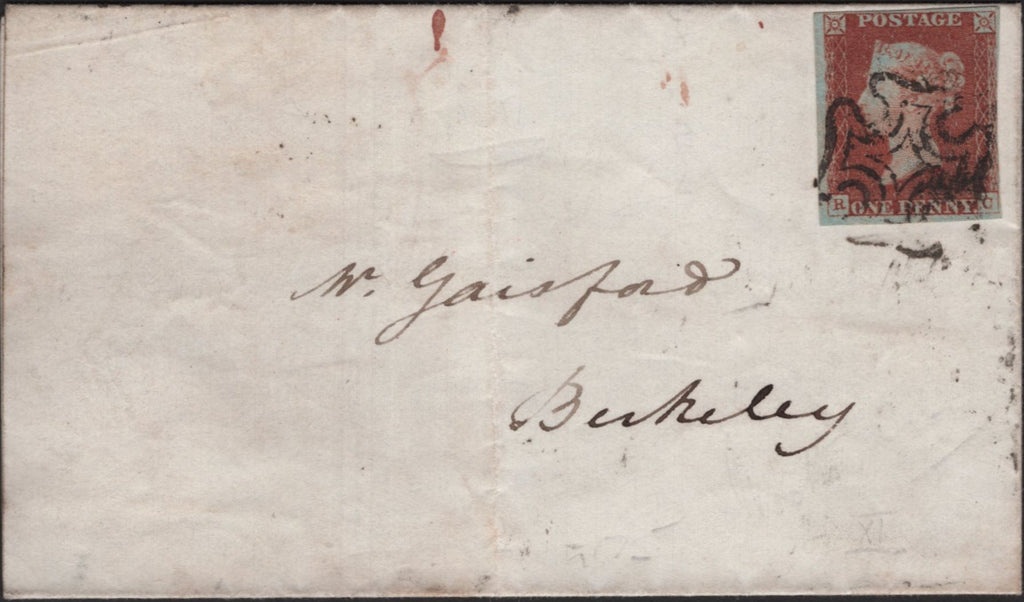 POSTAGE
R ONE PENNY. C
Mr. Gaisford
Berkeley